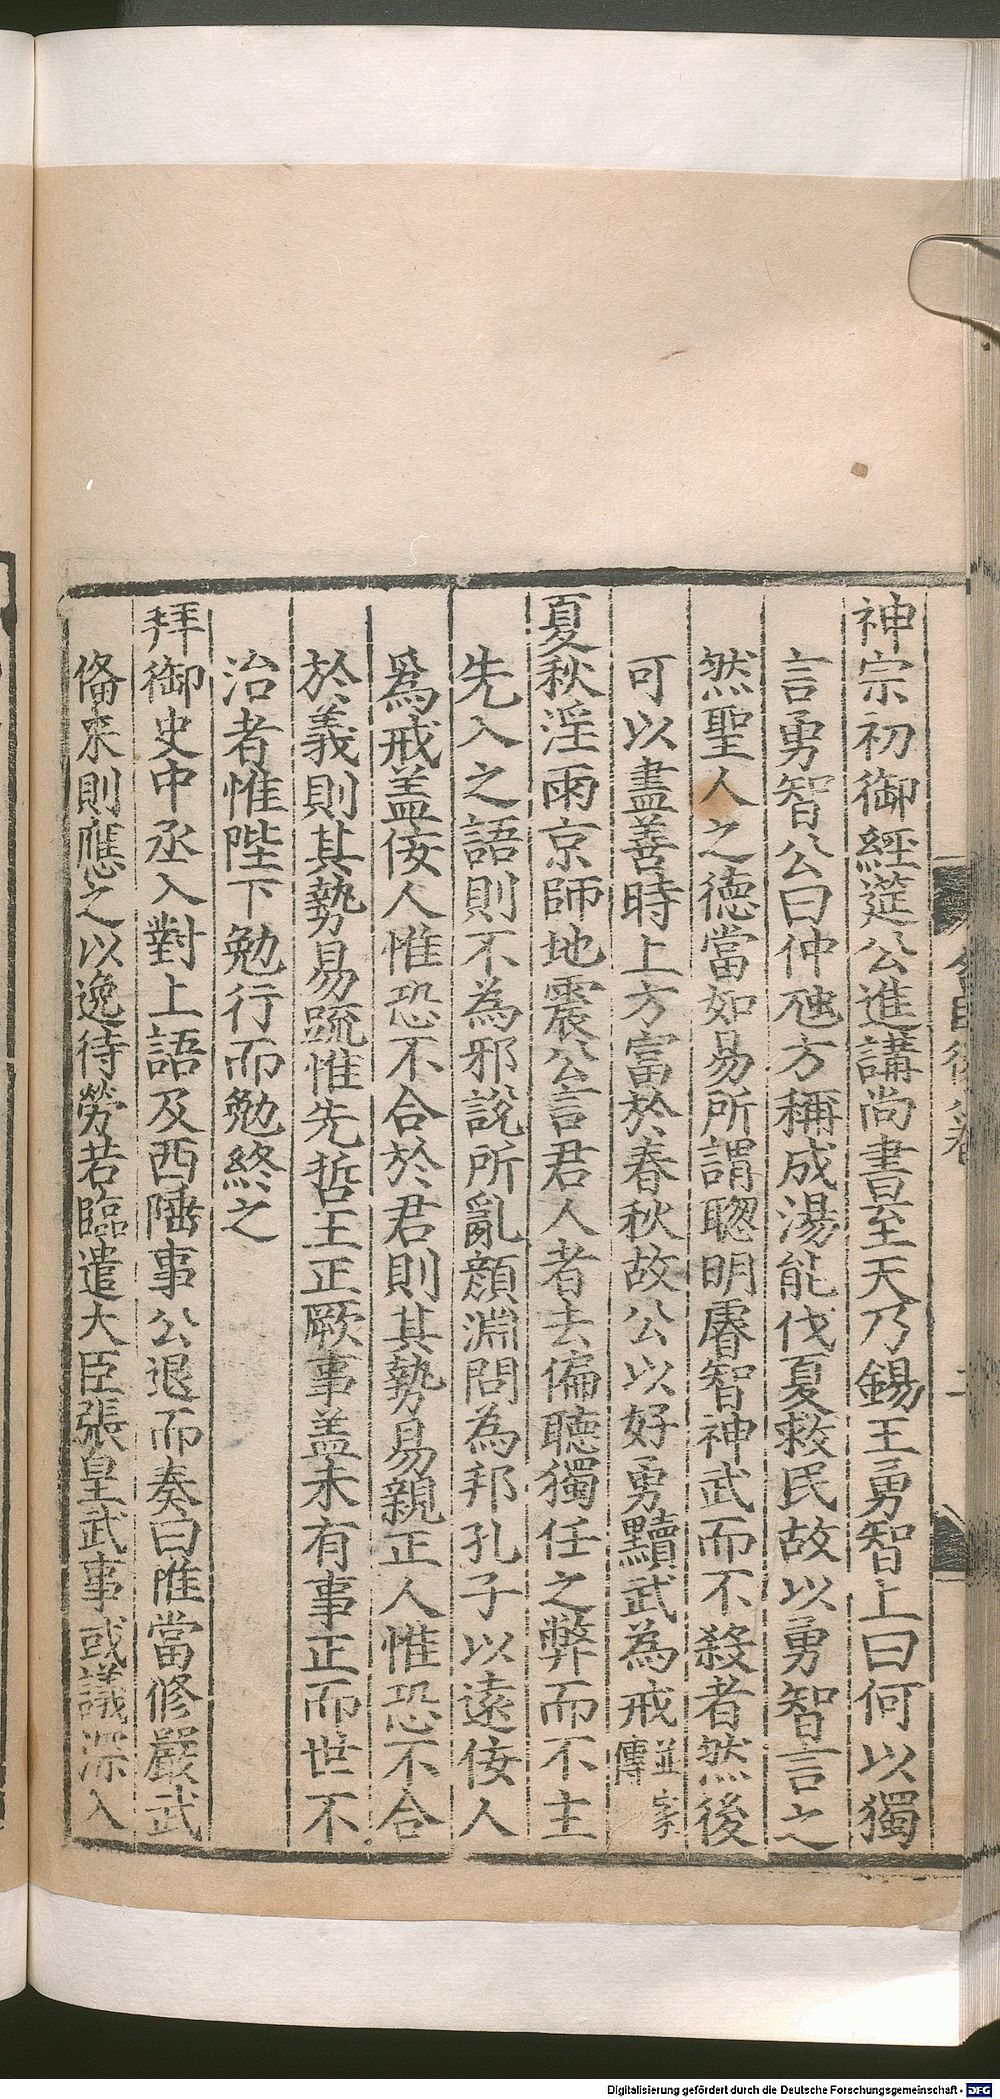 神宗初御經筵公進講尚書至天乃錫王勇智上曰何以獨
言勇智公曰仲虺方稱成湯能伐夏救民故以勇智言之
然聖人之德當如易所謂聰明睿智神武而不殺者然後
可以盡善時上方富於春秋故公以好勇黷武為戒並家傳
夏秋淫雨京師地震公言君人者去偏聽獨任之弊而不主
先入之語則不為邪說所亂顏淵問為邦孔子以遠佞人
爲戒盖佞人惟恐不合於君則其勢易親正人惟恐不合
於義則其勢易踈惟先哲王正厥事盖未有事正而世不
治者惟陛下勉行而勉終之
拜御史中丞入對上語及西陲事公退而奏曰惟當修嚴武
俻來則應之以逸待勞若臨遣大臣張皇武事或議深入
Digitalisierung gefördert durch die Deutsche Forschungsgemeinschaft - DFG